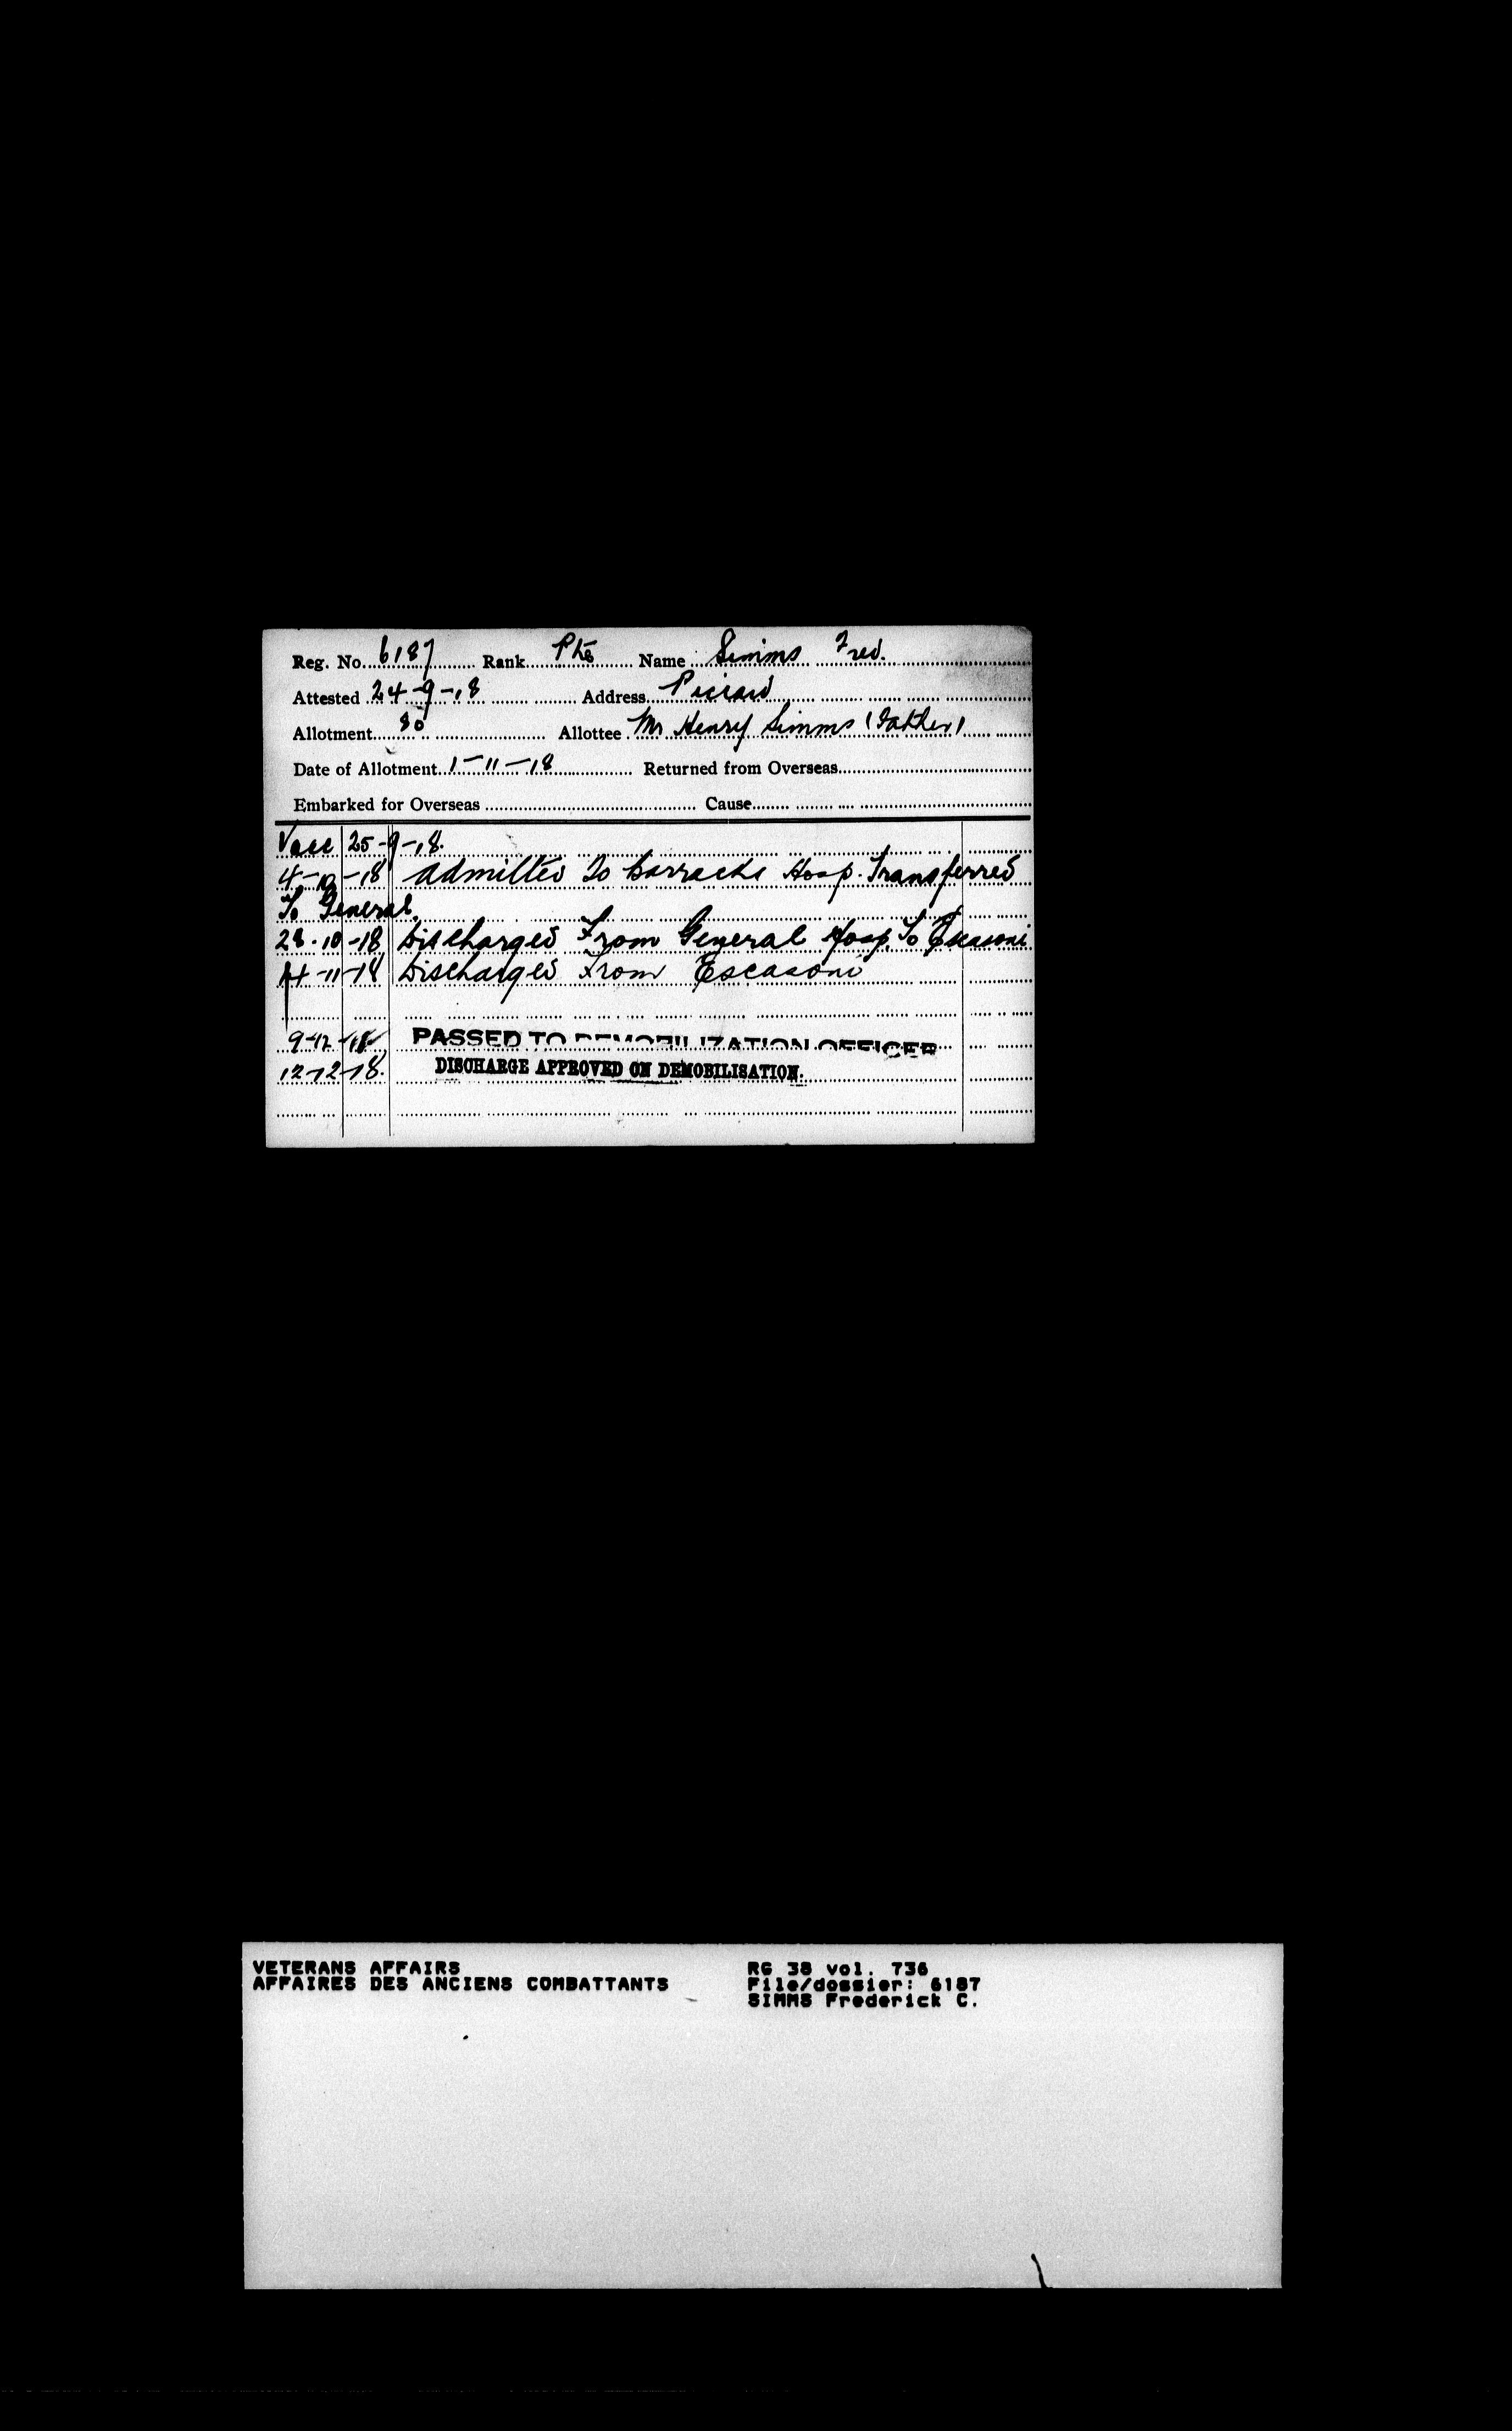 Reg. No. 6187 Rank Pte Name Simms Fred.
Attested 24-9-18 Address
Allotment Allottee Mr Henry Simms (Father)
Date of Allotment 1-11-18 Returned from Overseas
Embarked for Overseas Cause
Vacc 25-9-18.
4-10-18 Admitted To Barracks Hosp. Transferred
To General.
28-10-18 Discharged From General Hosp. To Escasoni
-11-18 Discharged From Escasoni
9-12-18 PASSED TO DEMOBILIZATION OFFICER
12-12-18. DISCHARGE APPROVED ON DEMOBILISATION.
VETERANS AFFAIRS RG 38 vol. 736
AFFAIRES DES ANCIENS COMBATTANTS File/dossier: 6187
SIMMS Frederick C.